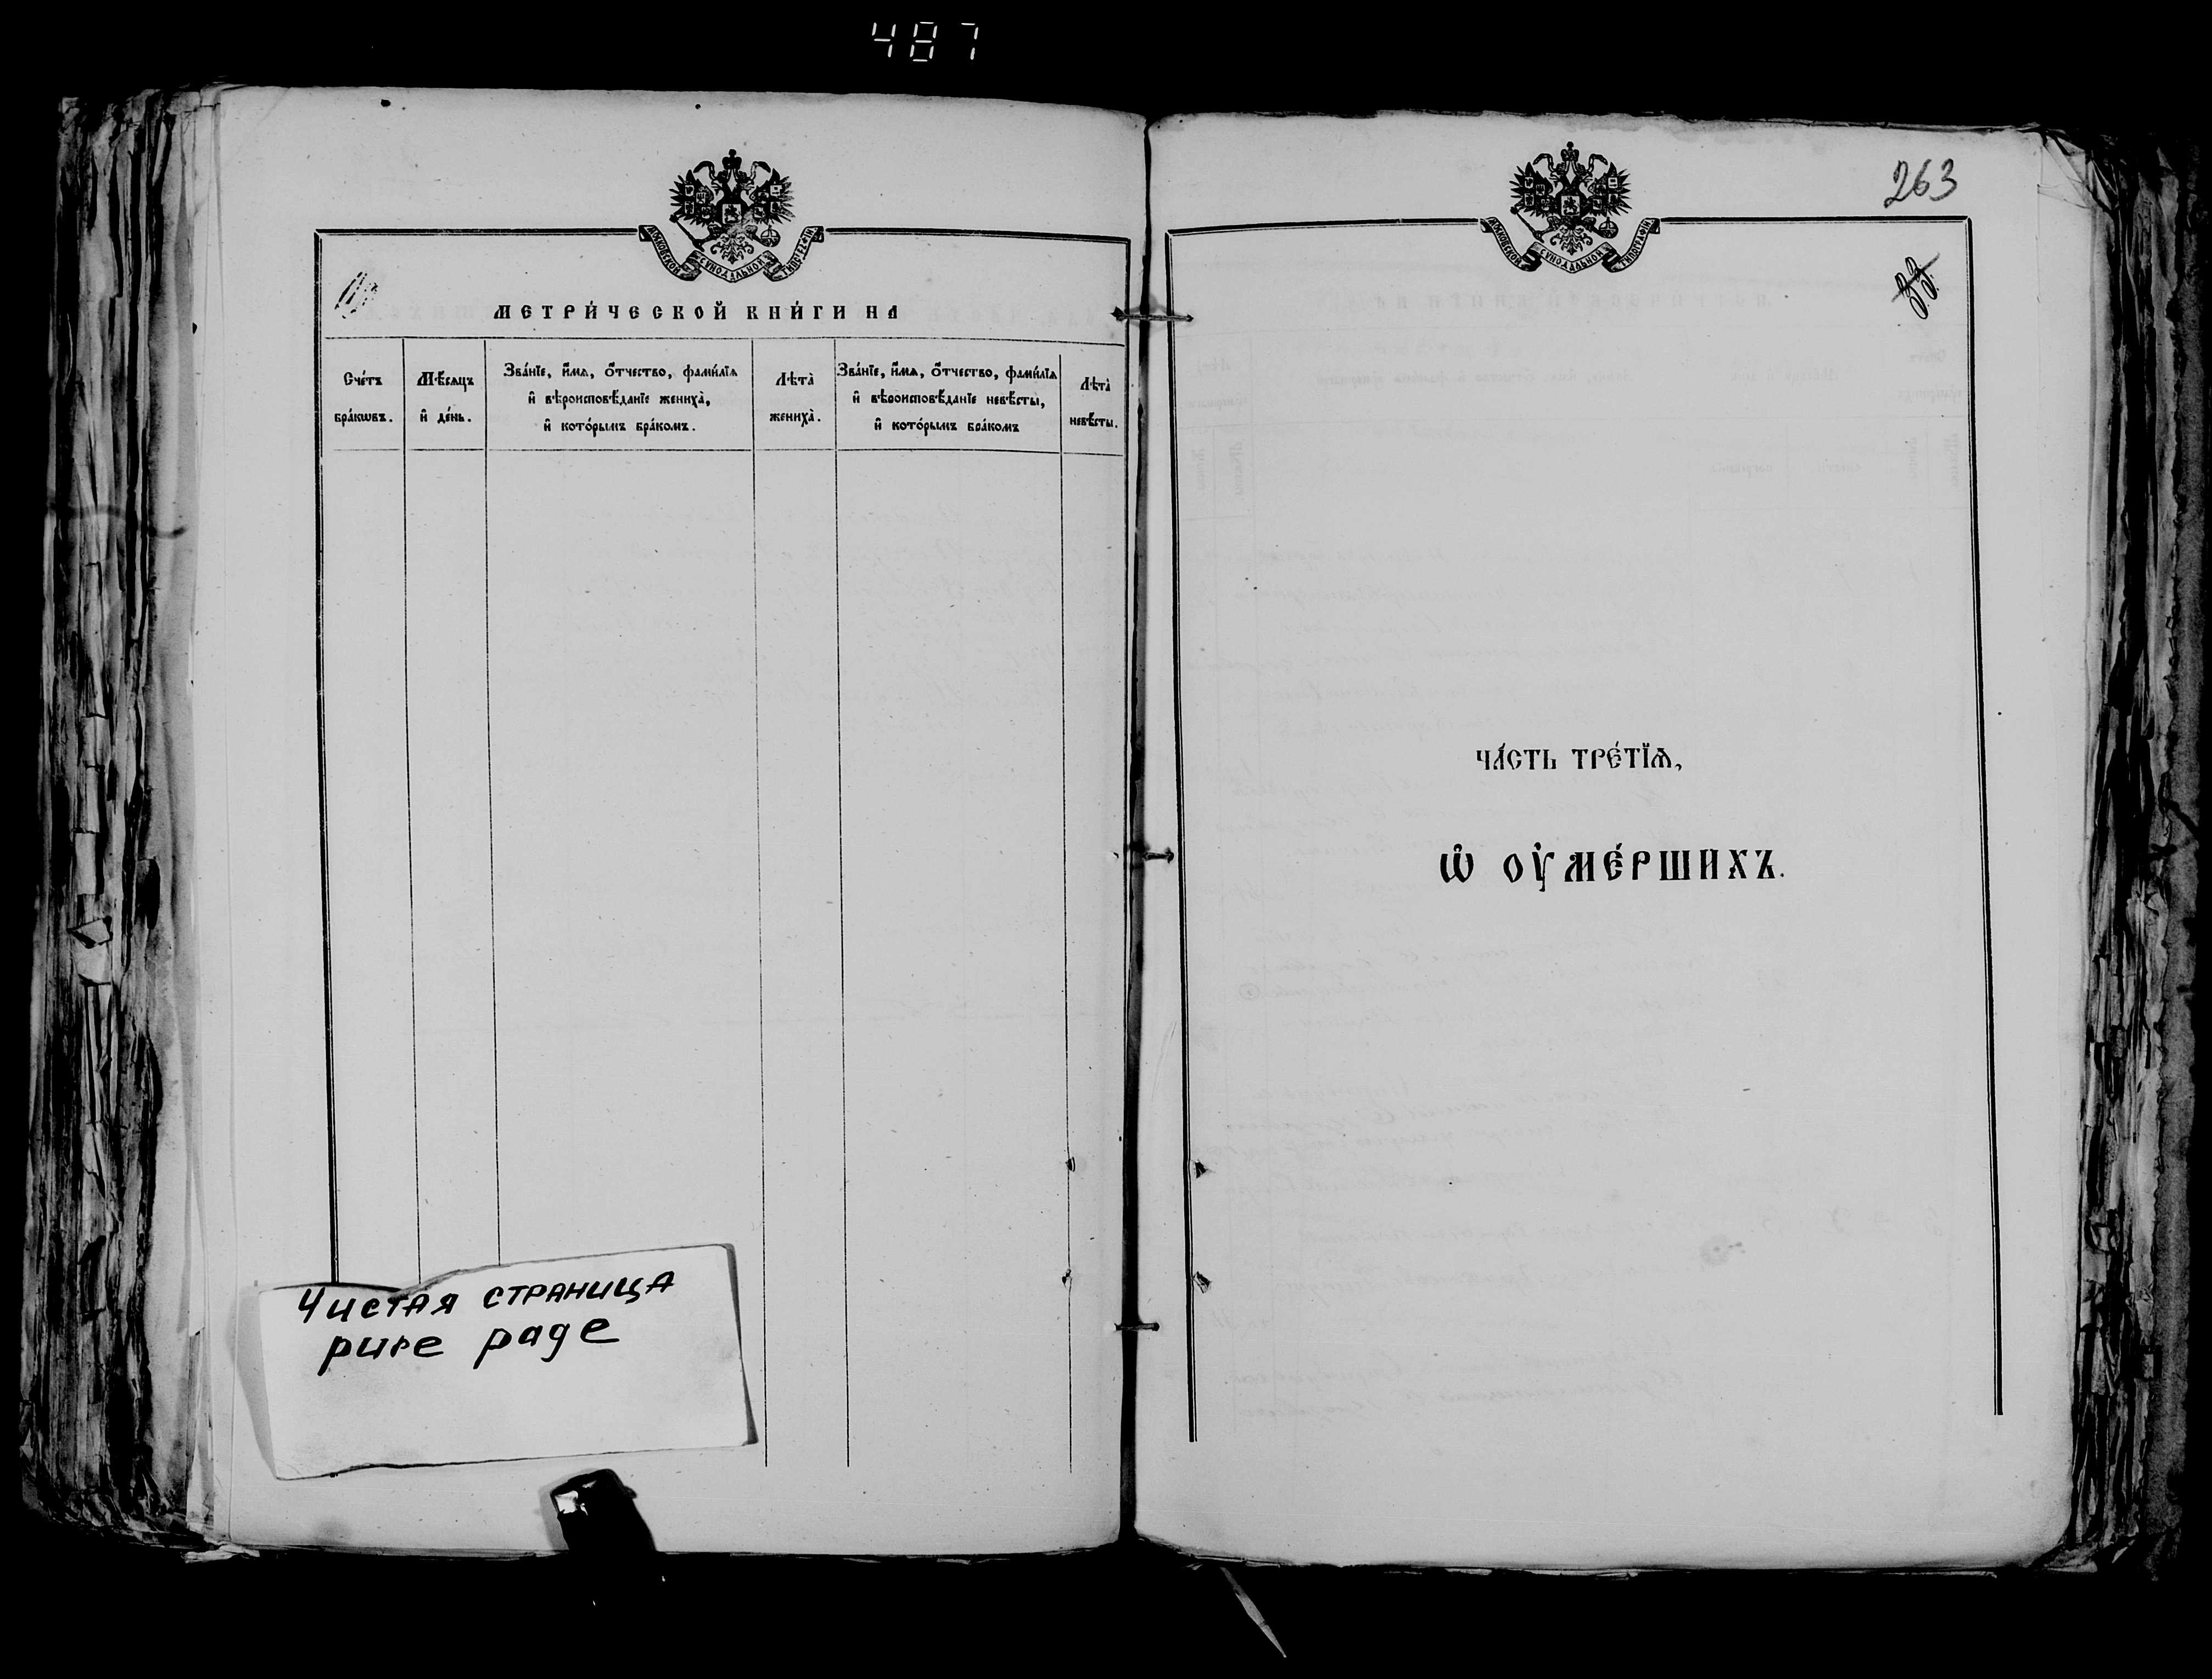 487
МОСКОВСКОЙ СѴНОДАЛЬНОЙ ТИПОГРАФІИ
МЕТРИ́ЧЕСКОЙ КНИ́ГИ НА
Сче́тъ
бра́кѡвъ.
Мѣ́сяцъ
и҆ де́нь.
Зва́нїе, и҆́мѧ, ѻ҆́тчество, фами́лїѧ
и҆ вѣроисповѣ́данїе жениха̀,
и҆ кото́рымъ бра́комъ.
Лѣта̀
жениха̀.
Зва́нїе, и҆́мѧ, ѻ҆́тчество, фами́лїѧ
и҆ вѣроисповѣ́данїе невѣ́сты,
и҆ кото́рымъ бра́комъ
Лѣта̀
невѣ́сты.
Чистая страница
pure page
263
МОСКОВСКОЙ СѴНОДАЛЬНОЙ ТИПОГРАФІИ
33.
ЧА́СТЬ ТРЕ́ТЇѦ,
Ѡ҆ ОУ҆МЕ́РШИХЪ.